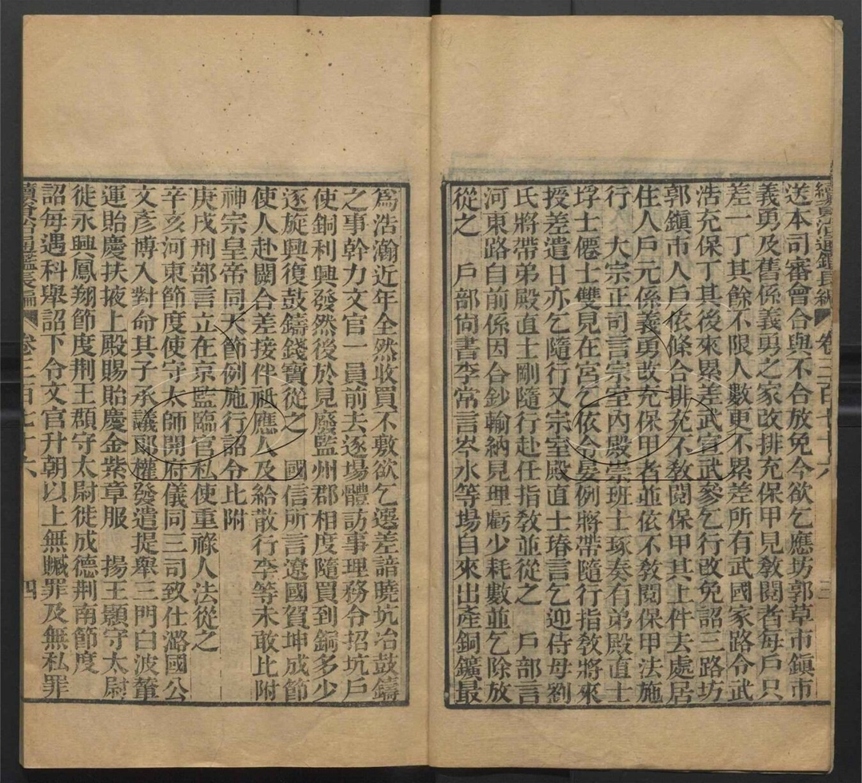 續資治通鑑長編 卷三百七十六 三
送本司審會合與不合放免今欲乞應坊郭草市鎮市
義勇及舊係義勇之家改排充保甲見教閱者每戶只
差一丁其餘不限人數更不累差所有武國家路令武
浩充保丁其後來累差武宣武參乞行改免詔三路坊
郭鎮市人戶依條合排充不教閱保甲其上件去處居
住人戶元係義勇改充保甲者並依不教閱保甲法施
行 大宗正司言宗室內殿崇班士琢奏有弟殿直士
垺士僊士雙見在宮乞依令晏例將帶隨行指教將來
授差遣日亦乞隨行又宗室殿直士瑃言乞迎侍母劉
氏將帶弟殿直士剛隨行赴任指教並從之 戶部言
河東路自前係因合鈔輸納見理虧少耗數並乞除放
從之 戶部尚書李常言岑水等場自來出產銅鑛最
爲浩瀚近年全然收買不敷欲乞選差諳曉坑冶鼓鑄
之事幹力文官一員前去逐場體訪事理務令招坑戶
使銅利興發然後於見廢監州郡相度隨買到銅多少
逐旋興復鼓鑄錢寶從之 國信所言遼國賀坤成節
使人赴闕合差接伴祗應人及給散行李等未敢比附
神宗皇帝同天節例施行詔令比附
庚戌刑部言立在京監臨官私使重祿人法從之
辛亥河東節度使守太師開府儀同三司致仕潞國公
文彥博入對命其子承議郎權發遣提舉三門白波輦
運貽慶扶掖上殿賜貽慶金紫章服 揚王顥守太尉
徙永興鳳翔節度荆王頵守太尉徙成德荆南節度
詔每遇科舉詔下令文官升朝以上無贓罪及無私罪
續資治通鑑長編 卷三百七十六 四